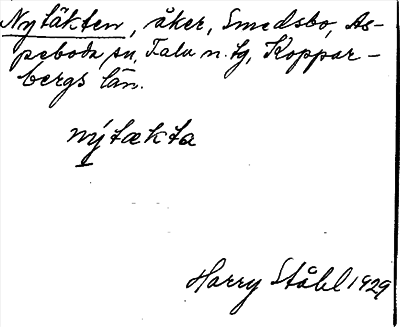 Nytäkten, åker, Smedsbo, As-
peboda sn, Falu n. tg, Koppar-
bergs län.
nýtækta
Harry Ståhl 1929